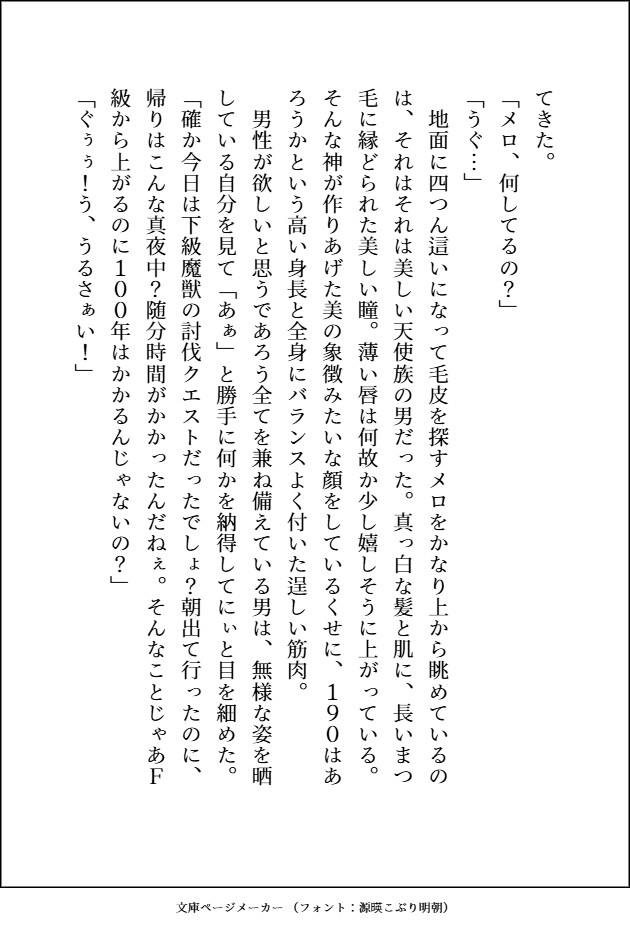 てきた。
「メロ、何してるの？」
「うぐ…」
　地面に四つん這いになって毛皮を探すメロをかなり上から眺めているの
は、それはそれは美しい天使族の男だった。真っ白な髪と肌に、長いまつ
毛に縁どられた美しい瞳。薄い唇は何故か少し嬉しそうに上がっている。
そんな神が作りあげた美の象徴みたいな顔をしているくせに、１９０はあ
ろうかという高い身長と全身にバランスよく付いた逞しい筋肉。
　男性が欲しいと思うであろう全てを兼ね備えている男は、無様な姿を晒
している自分を見て「あぁ」と勝手に何かを納得してにぃと目を細めた。
「確か今日は下級魔獣の討伐クエストだったでしょ？朝出て行ったのに、
帰りはこんな真夜中？随分時間がかかったんだねぇ。そんなことじゃあＦ
級から上がるのに１００年はかかるんじゃないの？」
「ぐぅぅ！う、うるさぁい！」
文庫ページメーカー（フォント：源暎こぶり明朝）